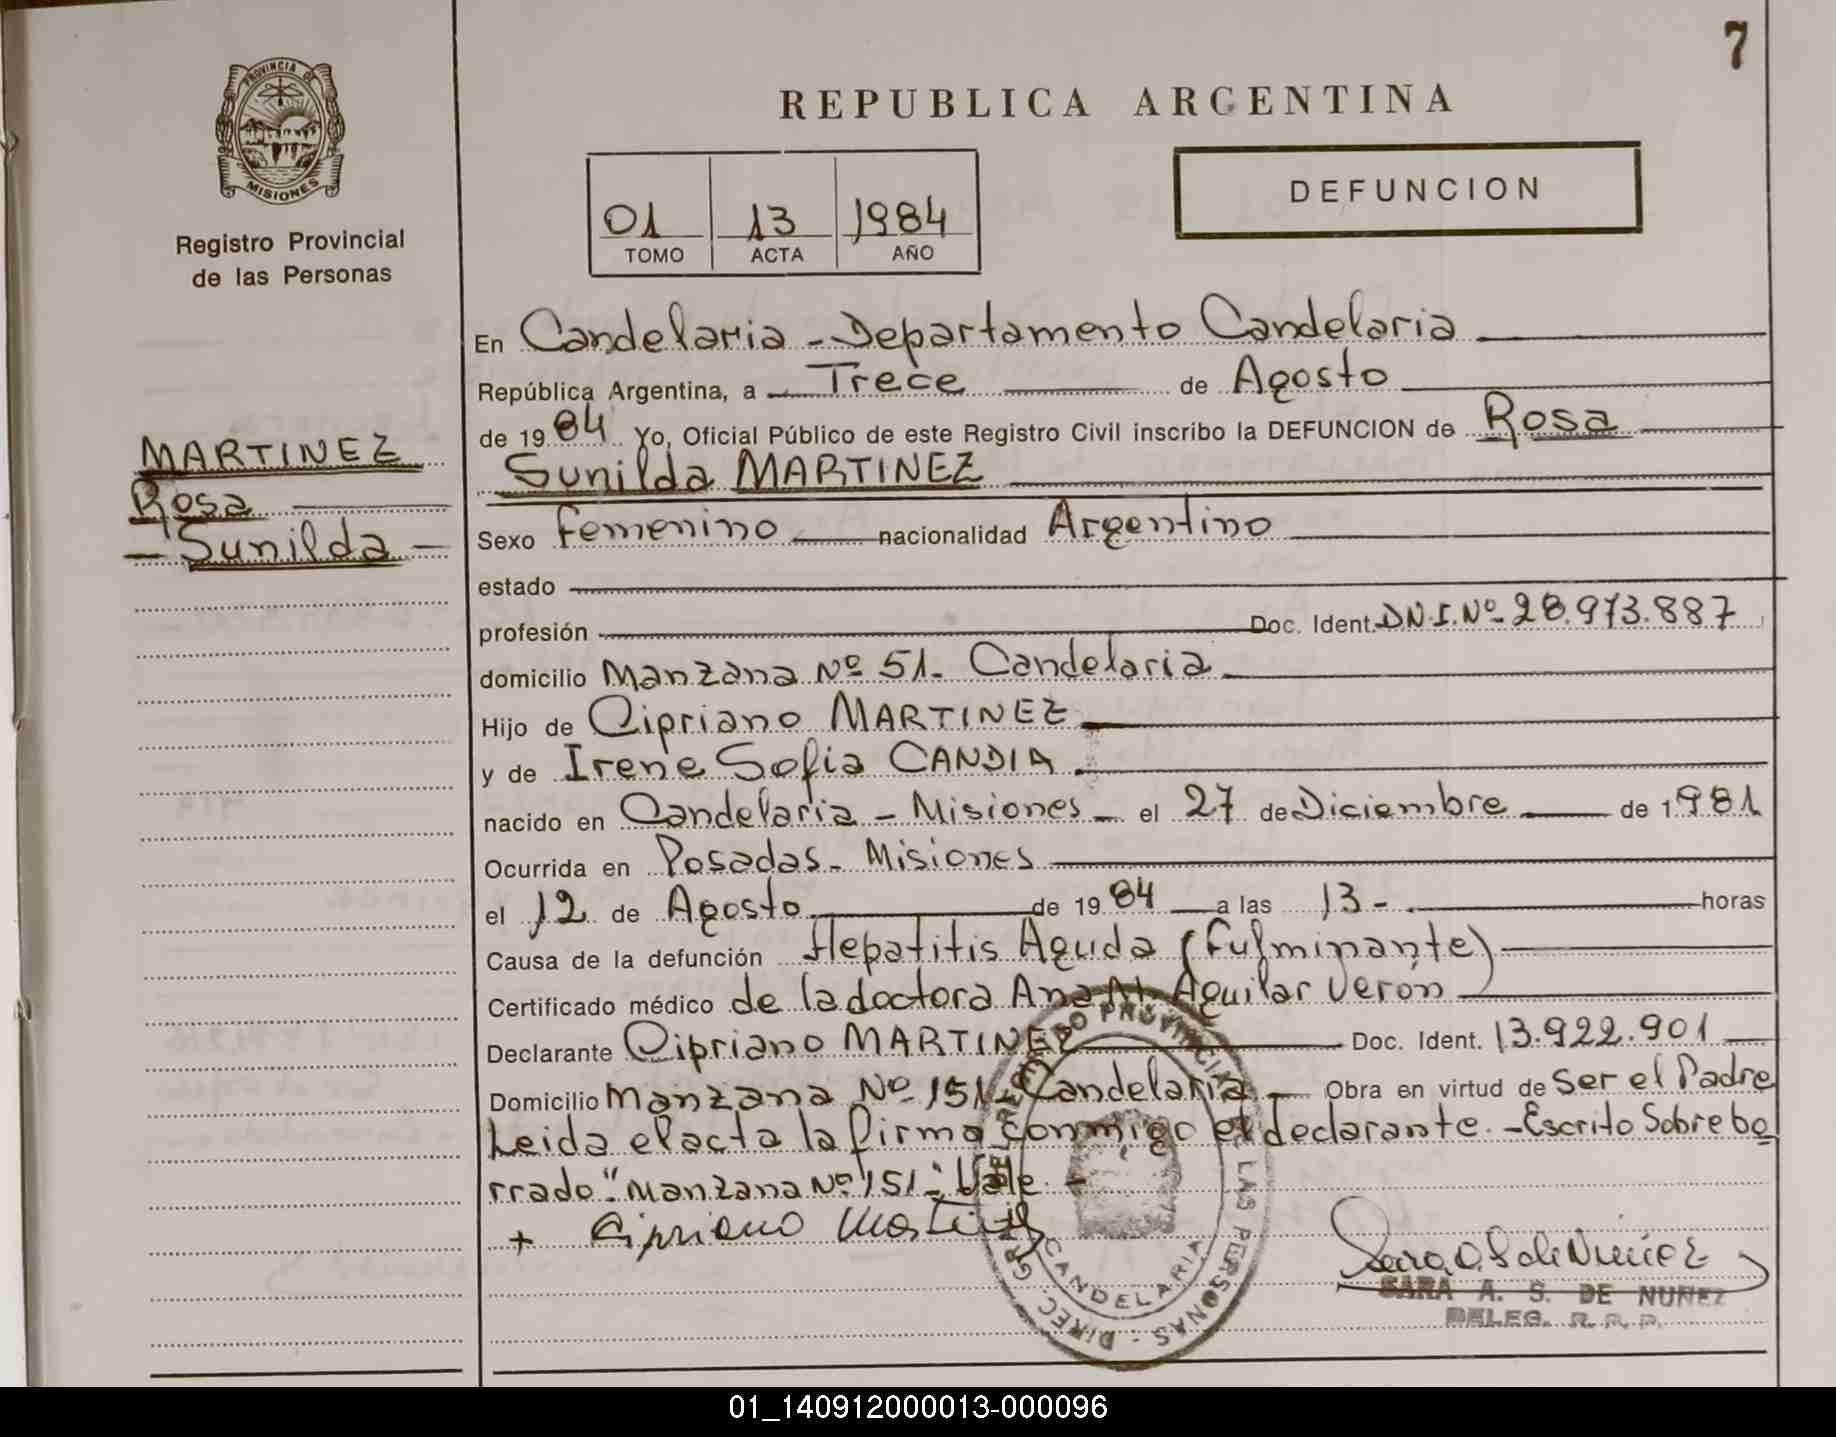 7
PROVINCIA DE
MISIONES
Registro Provincial
de las Personas
REPUBLICA ARGENTINA
01 13 1984
TOMO ACTA AÑO
DEFUNCION
MARTINEZ
Rosa
- Sunilda -
En Candelaria - Departamento Candelaria
República Argentina, a Trece de Agosto
de 1984 Yo, Oficial Público de este Registro Civil inscribo la DEFUNCION de Rosa
Sunilda MARTINEZ
Sexo femenino nacionalidad Argentino
estado
profesión Doc. Ident. D.N.I. Nº 28.973.887
domicilio Manzana Nº 51. Candelaria
Hijo de Cipriano MARTINEZ
y de Irene Sofia CANDIA
nacido en Candelaria - Misiones - el 27 de Diciembre de 1981
Ocurrida en Posadas - Misiones
el 12 de Agosto de 1984 a las 13 - horas
Causa de la defunción Hepatitis Aguda (Fulminante)
Certificado médico de la doctora Ana M. Aguilar Verón
Declarante Cipriano MARTINEZ Doc. Ident. 13.922.901
Domicilio Manzana Nº 151 - Candelaria - Obra en virtud de Ser el Padre
Leida el acta la firma conmigo el declarante. - Escrito Sobre bo
rrado "Manzana Nº 151": Vale -
+ Cipriano Martinez
Sara A. S. de Nuñez
SARA A. S. DE NUÑEZ
DELEG. R. P. P.
DIREC. GRAL. REGISTRO PROVINCIAL DE LAS PERSONAS -
CANDELARIA
01_140912000013-000096